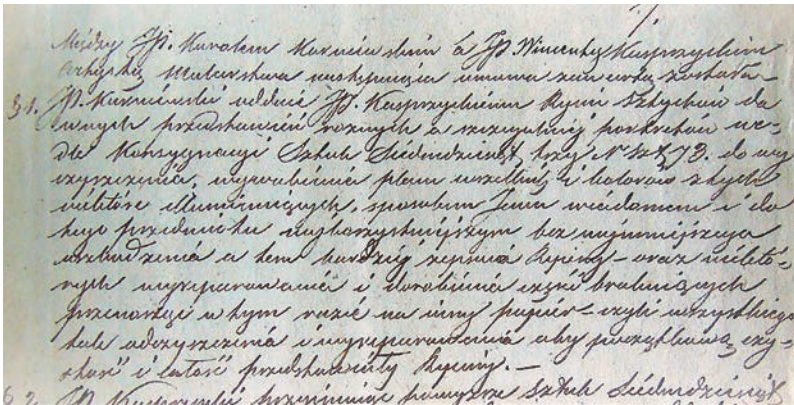 Między JP. Karolem Karniewskim a JP Wincentym Kasprzyckim
Artystą Malarstwa następująca umowa zawartą została –
§ 1. JP. Karniewski oddaie JP. Kasprzyckiemu Rycin Sztychów da
wnych przedstawień roznych a szczegulniej portretów we=
dle Konsygnacyi Sztuk Siedmdziesiąt trzy N Szt 73. do wy
czyszczenia, wywabienia plam wszelkich i kolorów z tych
niektóre sposobem Jemu wiadomem i do
tego przedmiotu naykorzystniejszym bez najmniejszego
uszkodzenia a tem bardziej zepsucia Ryciny – oraz niektó=
rych wyreparowania i dorobienia części brakuiących
przenosząc w tym razie na inny papier – czyli wszystkiego
tak odczyszczenia i wyreparowania aby początkową czy=
stość i całość przedstawiały Ryciny. –
§ 2. JP Kasprzycki powyższe Sztuk Siedmdziesiąt